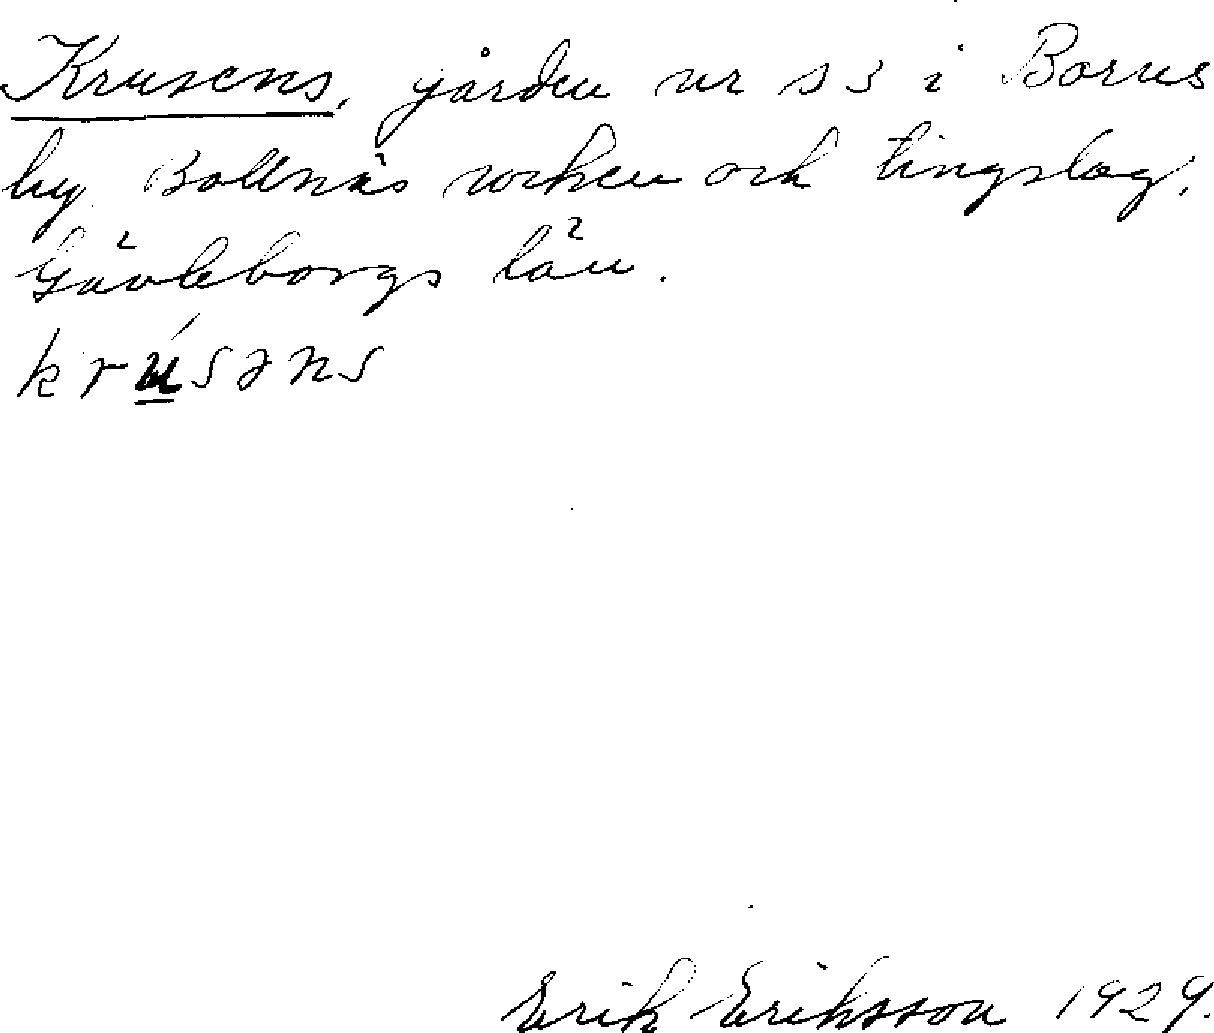 Krusens, gården nr s 3 i Borns
by Bollnäs socken och tingslag,
Gävleborgs län.
krúsəns
Erik Eriksson 1929.